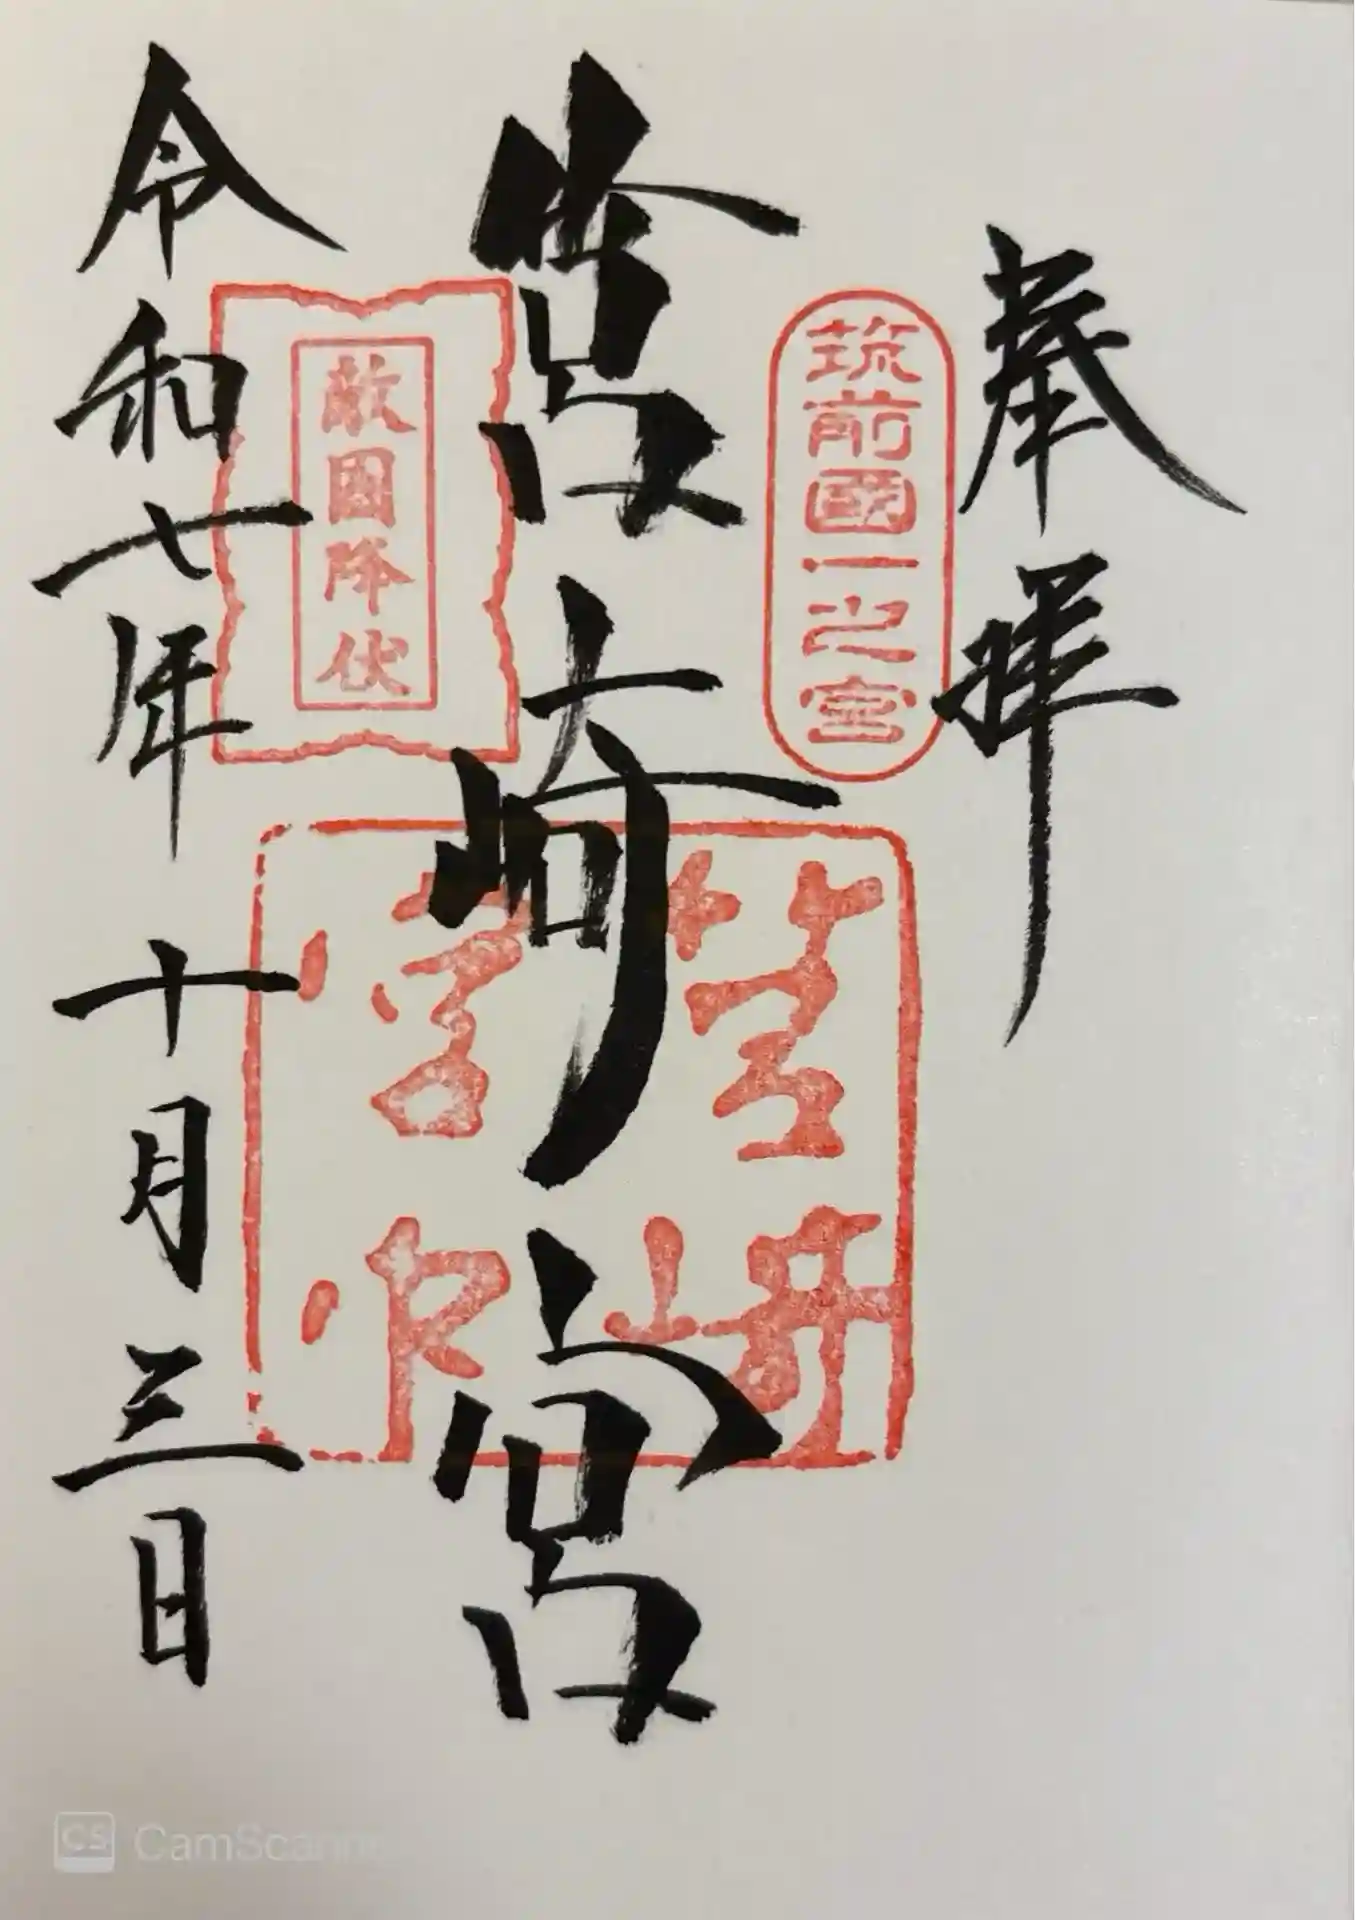 奉拝
筑前國一之宮
筥崎宮
敵國降伏
筥崎
宮印
令和七年十月三日
CS CamScanner